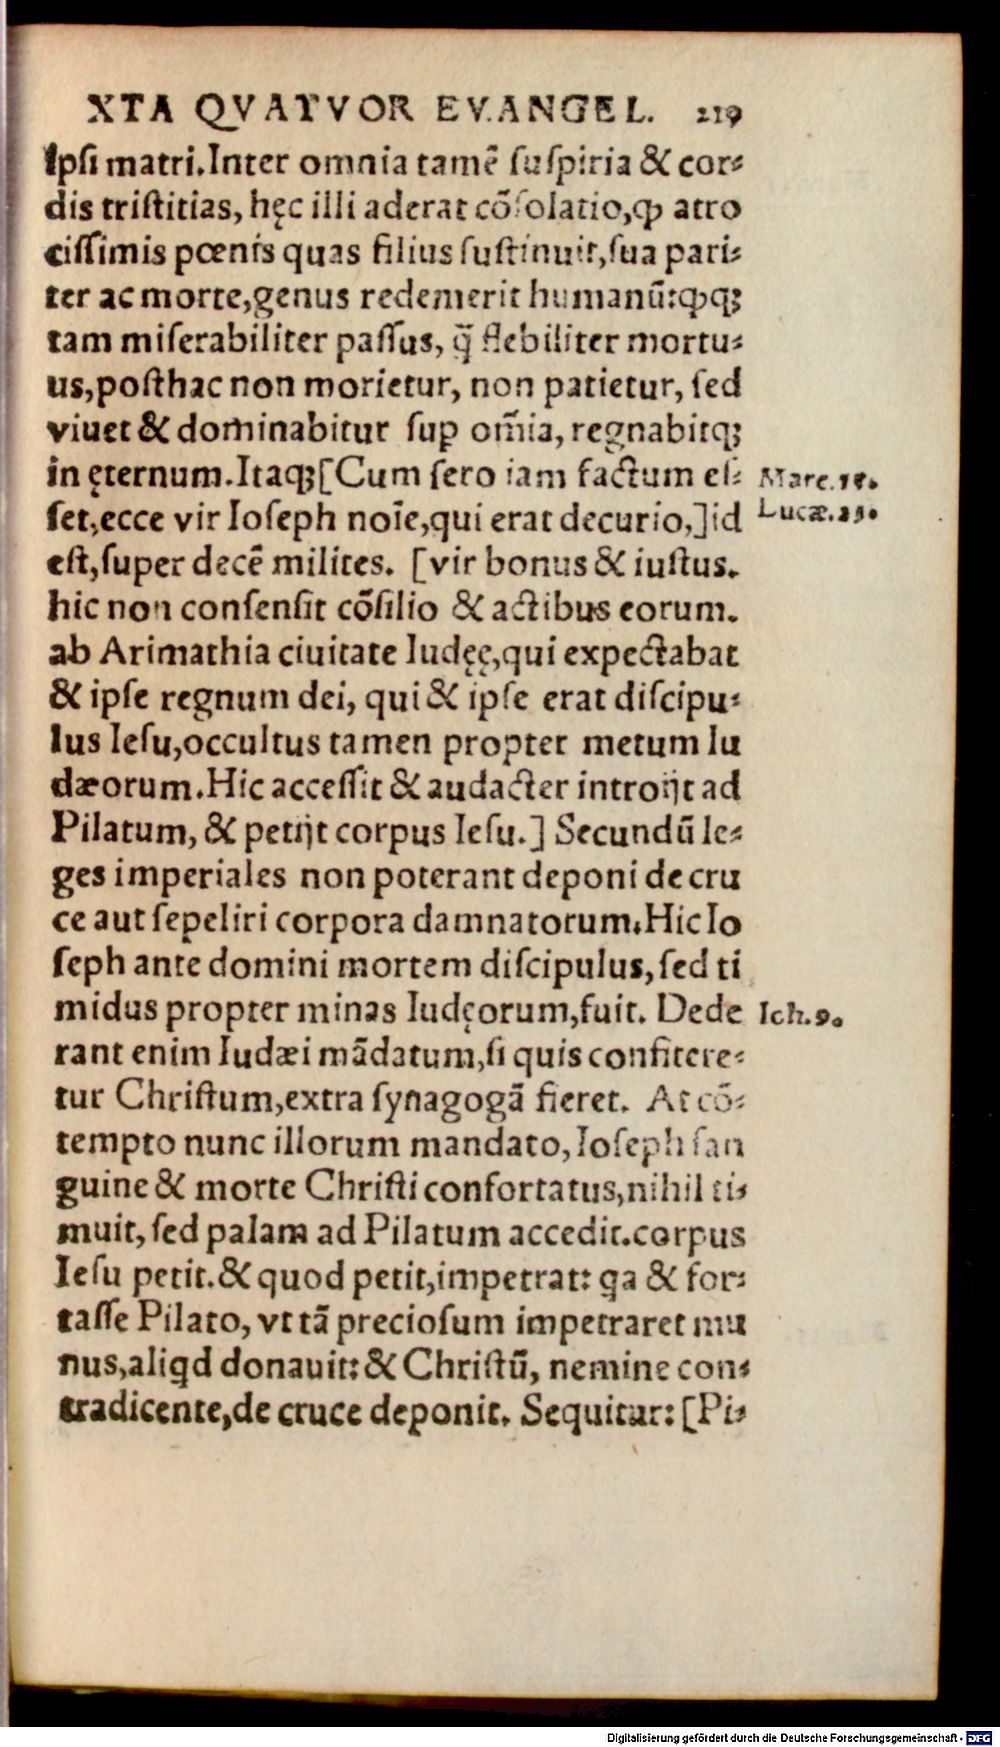 XTA QVATVOR EVANGEL. 219
ipsi matri. Inter omnia tamē suſpiria & cor⸗
dis triſtitias, hęc illi aderat cõſolatio, ꝙ atro
ciſſimis pœnis quas filius ſuſtinuit, ſua pari⸗
ter ac morte, genus redemerit humanū: ꝙq́;
tam miſerabiliter paſſus, q̃ flebiliter mortu⸗
us, poſthac non morietur, non patietur, ſed
viuet & dominabitur ſuꝑ om̃ia, regnabitq;
in ęternum. Itaq; [Cum ſero iam factum eſ⸗
ſet, ecce vir Ioſeph noīe, qui erat decurio,] id
eſt, ſuper decē milites. [vir bonus & iuſtus.
hic non conſenſit cõſilio & actibus eorum.
ab Arimathia ciuitate Iudęę, qui expectabat
& ipſe regnum dei, qui & ipſe erat diſcipu⸗
lus Ieſu, occultus tamen propter metum Iu
dæorum. Hic acceſſit & audacter introijt ad
Pilatum, & petijt corpus Ieſu.] Secundū le⸗
ges imperiales non poterant deponi de cru
ce aut ſepeliri corpora damnatorum. Hic Io
ſeph ante domini mortem diſcipulus, ſed ti
midus propter minas Iudęorum, fuit. Dede
rant enim Iudæi mãdatum, ſi quis confitere⸗
tur Chriſtum, extra ſynagogã fieret. At cõ⸗
tempto nunc illorum mandato, Ioſeph ſan
guine & morte Chriſti confortatus, nihil ti⸗
muit, ſed palam ad Pilatum accedit. corpus
Ieſu petit. & quod petit, impetrat: ꝗa & for⸗
taſſe Pilato, vt tã precioſum impetraret mu
nus, aliꝗd donauit: & Chriſtū, nemine con⸗
tradicente, de cruce deponit. Sequitur: [Pi⸗
Marc. 15.
Lucæ. 23.
Ioh. 9.
Digitalisierung gefördert durch die Deutsche Forschungsgemeinschaft - DFG